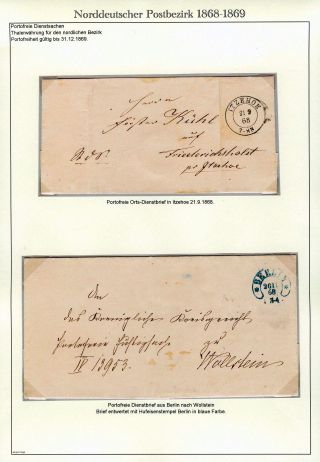 Norddeutscher Postbezirk 1868-1869
Portofreie Dienstsachen
Thalerwährung für den nordlichen Bezirk
Portofreiheit gültig bis 31.12.1869.
Herrn
Förster Kühl
auf
Friedrichsholst
pr Itzehoe
ITZEHOE
21 9
68
7-8N
Portofreie Orts-Dienstbrief in Itzehoe 21.9.1868.
An
das Koenigliche Kreisgericht
zu
Wollstein
IV 13953.
BERLIN
68
3-4
Portofreie Dienstbrief aus Berlin nach Wollstein
Brief entwertet mit Hufeisenstempel Berlin in blaue Farbe.